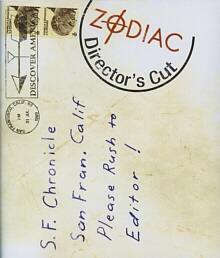 ZODIAC
Director's Cut
DISCOVER AMERICA
SAN FRANCISCO, CALIF
S.F. Chronicle
San Fran. Calif
Please Rush to
Editor!